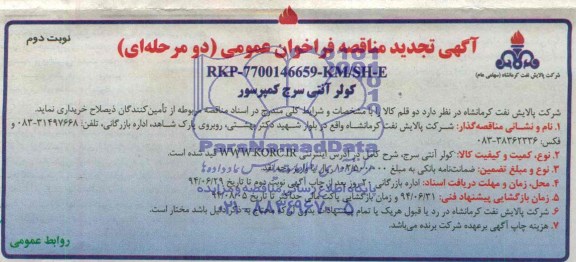 نوبت دوم
آگهی تجدید مناقصه فراخوان عمومی (دو مرحله‌ای)
شرکت پالایش نفت کرمانشاه (سهامی عام)
RKP-7700146659-KM/SH-E
کولر آنتی سرج کمپرسور
شرکت پالایش نفت کرمانشاه در نظر دارد دو قلم کالا را با مشخصات و شرایط کلی مندرج در اسناد مناقصه مربوطه از تأمین‌کنندگان ذیصلاح خریداری نماید.
۱. نام و نشانی مناقصه‌گذار: شرکت پالایش نفت کرمانشاه واقع در بلوار شهید دکتر بهشتی، روبروی پارک شاهد، اداره بازرگانی، تلفن: ۳۱۴۹۷۶۶۸-۰۸۳ و
فکس: ۳۸۳۶۲۳۳۶-۰۸۳
۲. نوع، کمیت و کیفیت کالا: کولر آنتی سرج، شرح کامل در آدرس اینترنتی WWW.KORC.IR قید شده است.
۳. نوع و مبلغ تضمین: ضمانت‌نامه بانکی به مبلغ ریال
۴. محل، زمان و مهلت دریافت اسناد: اداره بازرگانی - روز بعد از چاپ آگهی نوبت دوم تا تاریخ ۹۴/۰۶/۲۹
۵. زمان بازگشایی پیشنهاد فنی: ۹۴/۰۶/۳۱ و زمان بازگشایی پاکت مالی حداکثر تا تاریخ
۶. شرکت پالایش نفت کرمانشاه در رد یا قبول هریک یا تمام پیشنهادات بدون به ذکر دلیل باشد مختار است.
۷. هزینه چاپ آگهی برعهده شرکت برنده می‌باشد.
روابط عمومی
ParsNamadData
پایگاه اطلاع رسانی مناقصه و مزایده